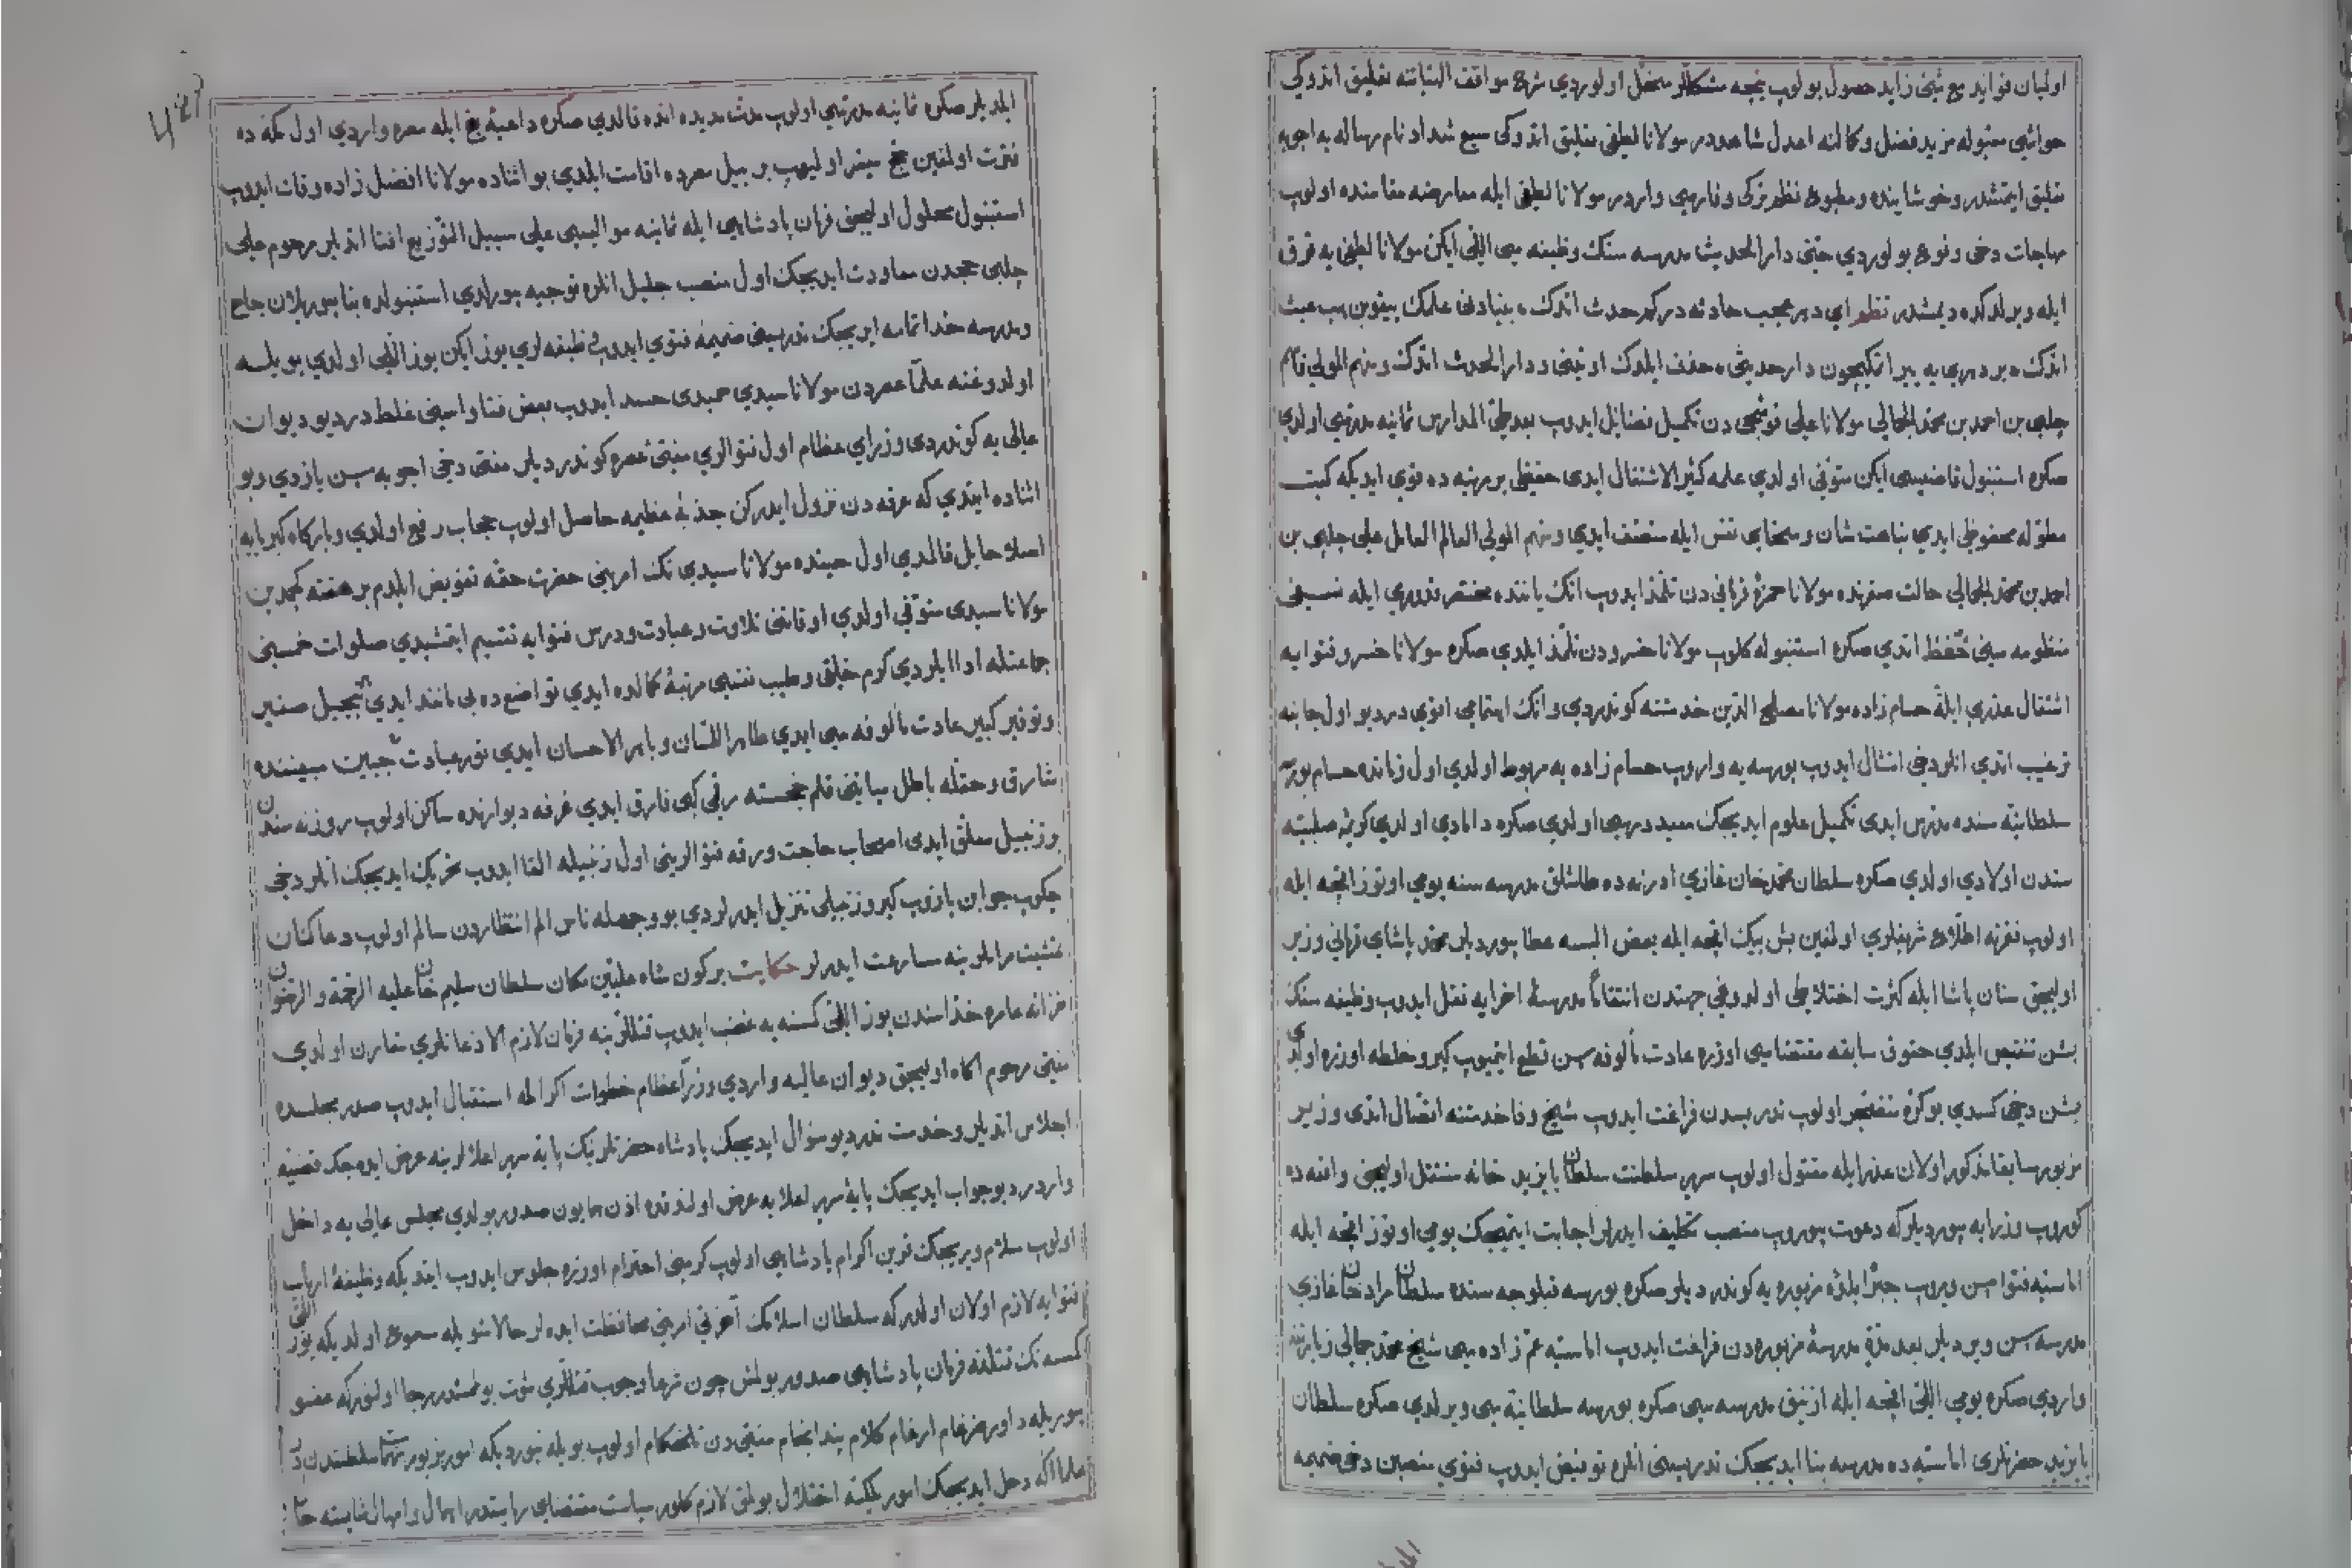 اولیان فواید بیع شیئ زاید حصول بولوب نیجه مشکللر منحل اولوردی شرح مواقف الهیاتنه تعلیق اتدوکی
حواشی مقبوله مزید فضل و کمالنه اعدل شاهددر مولانا لطفی تعلیق اتدوکی سبع شداد نام رساله یه اجوبه
تعلیق ایتمشدر و خوشاینده و مطبوع نظم ترکی و فارسی واردر مولانا لطفی ایله معارضه مقامنده اولوب
مهاجات دخی وقوع بولوردی حتی دارالحدیث مدرسه سنک وظیفه سی اللی ایکن مولانا لطفی یه فرق
ایله ویرلدکده دیمشدر نظم ای دهر عجب حادثه درکم حدث اتدک بنیادنی علمک ییقوبن هب عبث
اتدک بیر ایکیچون دار حدیثی حذف ایلدک اونینی و دارالحدث اتدک و منهم المولی قاسم
چلبی بن احمد بن محمد الجمالی مولانا علی قوشجی دن تکمیل فضائل ایدوب بعد طی المدارس ثمانیه مدرسی اولدی
صکره استنبول قاضیسی ایکن متوفی اولدی علمه کثیر الاشتغال ایدی حفظی بر مرتبه ده قوی ایدیکه کتب
مطوله محفوظی ایدی نباهت شان و سخای نفس ایله متصف ایدی و منهم المولی العالم العامل علی چلبی بن
احمد بن محمد الجمالی حالت صغرنده مولانا حمزه قرمانی دن تلمذ ایدوب انک یاننده مختصر قدوری ایله نسفی
منظومه سینی حفظ اتدی صکره استنبوله کلوب مولانا خسرودن تلمذ ایلدی صکره مولانا خسرو فتوایه
اشتغال عذری ایله حسام زاده مولانا مصلح الدین خدمتنه کوندردی و انک اهتمامی اقوی در دیو اول جانبه
ترغیب اتدی انلر دخی امتثال ایدوب بورسه یه واروب حسام زاده یه مربوط اولدی اول زمانده حسام بورسه
سلطانیه سنده مدرس ایدی تکمیل علوم ایدیجک معید درسی اولدی صکره دامادی اولدی کریمه صلبیه
سندن اولادی اولدی صکره سلطان محمد خان غازی ادرنه ده طاشلق مدرسه سنه یومی اوتوز اقچه ایله
اولوب فقرنه اطلاع شریفلری اولغین بش بیک اقچه ایله بعض البسه عطا بیوردیلر محمد پاشای قرمانی وزیر
اولیجق سنان پاشا ایله کثرت اختلاطی اولدوغی جهتدن انتقاماً مدرسه اخرایه نقل ایدوب وظیفه سنک
بشن تنقیص ایلدی حقوق سابقه مقتضاسی اوزره عادت مألوفه سن قطع ایتمیوب کیرو خلطه اوزره اولدی
بشن دخی کسدی بو کره منفجر اولوب تدریسدن فراغت ایدوب شیخ وفا خدمتنه اتصال اتدی وزیر
مزبور سابقا مذکور اولان عذر ایله مقتول اولوب سریر سلطنت سلطان بایزید خانه منتقل اولیجق واقعه ده
کوروب وزرایه بیوردیلر که دعوت بیوروب منصب تکلیف ایدرلر اجابت ایتمیجک یومی اوتوز اقچه ایله
اماسیه فتواسن ویروب جبراً بلده مزبوره یه کوندردیلر صکره بورسه قبلوجه سنده سلطان مراد خان غازی
مدرسه سن ویردیلر بعد مدة مدرسه مزبوره دن فراغت ایدوب اماسیه عم زاده سی شیخ محمد جمالی زیارتنه
واردی صکره یومی اللی اقچه ایله ازنیق مدرسه سی صکره بورسه سلطانیه سی ویرلدی صکره سلطان
بایزید حضرتلری اماسیه ده مدرسه بنا ایدیجک تدریسینی انلره تفویض ایدوب فتوی منصبین دخی ضمیمه
ایلدیلر صکره ثمانیه مدرسی اولوب مدت مدیده انده قالدی صکره داعیه حج ایله مصره واردی اول مکه ده
فترت اولغین حج میسر اولمیوب بر ییل مصرده اقامت ایلدی بو اثناده مولانا افضل زاده وفات ایدوب
استنبول محلول اولیجق فرمان پادشاهی ایله ثمانیه موالیسی علی سبیل التوزیع افتا اتدیلر مرحوم علی
چلبی حجدن معاودت ایدیجک اول منصب جلیل انلره توجیه بیورلدی استنبولده بنا بیوریلان جامع
و مدرسه خدا تمامه ایریجک تدریسینی ضمیمه فتوی ایدوب وظیفه لری یوز ایکن یوز اللی اولدی بویلسه
اولدوغنه علمای عصردن مولانا سیدی حمیدی حسد ایدوب بعض فتاواسینی غلط در دیو دیوان
عالی یه کوندردی وزرای عظام اول فتوالری مفتی عصره کوندردیلر مفتی دخی اجوبه سن یازدی و بو
اثناده ایتدی که عرفه دن نزول ایدرکن جذبه عظیمه حاصل اولوب حجاب رفع اولدی و بارگاه کبریایه
اصلا حایل قالمدی اول حینده مولانا سیدی نک امرینی حضرت حقه تفویض ایلدم بر هفته کچمدین
مولانا سیدی متوفی اولدی اوقاتنی تلاوت و عبادت و درس فتوایه تقسیم ایتمشیدی صلوات خمسینی
جماعتله ادا ایلردی کرم خلقی و طیب نفسی مرتبه کمالده ایدی تواضع ده بی مانند ایدی تبجیل صغیر
و توقیر کبیر عادت مألوفه سی ایدی طاهر اللسان و باهر الاحسان ایدی نور عبادت جبین مبیننده
شارق و حقله باطل میاننی قلم خجسته رقمی کبی فارق ایدی غرفه دیوارنده ساکن اولوب روزنه سندن
بر زنبیل معلق ایدی اصحاب حاجت ورقه فتوالرینی اول زنبیله القا ایدوب تحریک ایدیجک انلر دخی
چکوب جوابن یازوب کیرو زنبیلی تنزیل ایدرلردی بو وجهله ناس الم انتظاردن سالم اولوب دعا کنان
تمشیت مرامنه مسارعت ایدرلر حکایت بر کون شاه علیین مکان سلطان سلیم خان علیه الرحمة و الرضوان
خزانه عامره خدامندن یوز اللی کسنه یه غضب ایدوب قتللرینه فرمان لازم الاذعانلری مقارن اولدی
مفتی مرحوم آگاه اولیجق دیوان عالیه واردی وزرا عظام خطوات اکرامله استقبال ایدوب صدر مجلسده
اجلاس اتدیلر و خدمت ندر دیو سؤال ایدیجک پادشاه حضرتلرینک پایه سریر اعلالرینه عرض ایده جک قضیه
واردر دیو جواب ایدیجک پایه سریر اعلایه عرض اولندقده اذن همایون صدور بولدی مجلس عالی یه داخل
اولوب سلام ویریجک قرین اکرام پادشاهی اولوب کرسی احترام اوزره جلوس ایدوب ایتدیکه وظیفه ارباب
فتوایه لازم اولان اولدر که سلطان اسلامک آخرتی امرینی محافظت ایده لر حالا شویله مسموع اولدیکه یوز اللی
کسنه نک قتلنه فرمان پادشاهی صدور بولمش چون شرعا وجوب قتللری ثبوت بولمامشدر رجا اولنور که عفو
بیوریله داور ضرغام ارغام کلام پند انجام مفتی دن اولوب بویله بیوردیکه امور مزبور مهمات سلطنتدندر
علما اکا دخل ایدیجک امور ملکیه اختلال بولمق لازم کلور سیاست مقتضای ریاستدر اهمال و امهال